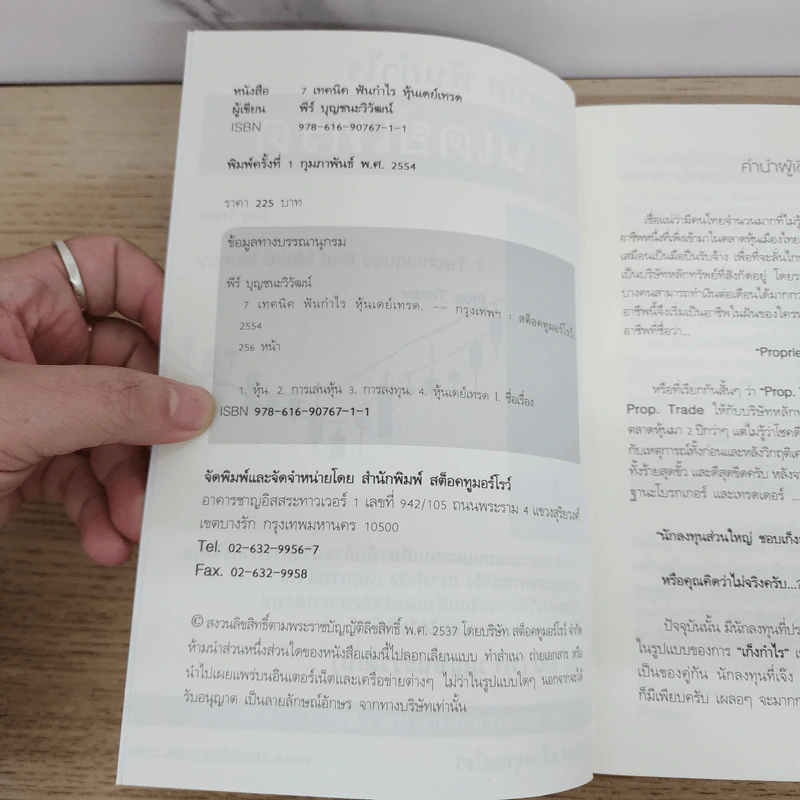 หนังสือ 7 เทคนิค ฟันกำไร หุ้นเดย์เทรด
ผู้เขียน พีร์ บุญชนะวิวัฒน์
ISBN 978-616-90767-1-1
พิมพ์ครั้งที่ 1 กุมภาพันธ์ พ.ศ. 2554
ราคา 225 บาท
ข้อมูลทางบรรณานุกรม
พีร์ บุญชนะวิวัฒน์
7 เทคนิค ฟันกำไร หุ้นเดย์เทรด. -- กรุงเทพฯ : สต็อคทูมอร์โรว์,
2554
256 หน้า
1. หุ้น. 2. การเล่นหุ้น 3. การลงทุน. 4. หุ้นเดย์เทรด I. ชื่อเรื่อง
ISBN 978-616-90767-1-1
จัดพิมพ์และจัดจำหน่ายโดย สำนักพิมพ์ สต็อคทูมอร์โรว์
อาคารชาญอิสสระทาวเวอร์ 1 เลขที่ 942/105 ถนนพระราม 4 แขวงสุริยวงศ์
เขตบางรัก กรุงเทพมหานคร 10500
Tel. 02-632-9956-7
Fax. 02-632-9958
© สงวนลิขสิทธิ์ตามพระราชบัญญัติลิขสิทธิ์ พ.ศ. 2537 โดยบริษัท สต็อคทูมอร์โรว์ จำกัด
ห้ามนำส่วนหนึ่งส่วนใดของหนังสือเล่มนี้ไปลอกเลียนแบบ ทำสำเนา ถ่ายเอกสาร หรือ
นำไปเผยแพร่บนอินเตอร์เน็ตและเครือข่ายต่างๆ ไม่ว่าในรูปแบบใดๆ นอกจากจะได้
รับอนุญาต เป็นลายลักษณ์อักษร จากทางบริษัทเท่านั้น
คำนำผู้เ
เชื่อแน่ว่ามีคนไทยจำนวนมากที่ไม่รู้
อาชีพหนึ่งที่เพิ่งเข้ามาในตลาดหุ้นเมืองไทย
เสมือนเป็นมือปืนรับจ้าง เพื่อที่จะลั่นไก
เป็นบริษัทหลักทรัพย์ที่สังกัดอยู่ โดย
บางคนสามารถทำเงินต่อเดือนได้มากกว่า
อาชีพนี้จึงเริ่มเป็นอาชีพในฝันของใคร
อาชีพที่ชื่อว่า...
"Proprie
หรือที่เรียกกันสั้นๆ ว่า "Prop.
Prop. Trade ให้กับบริษัทหลัก
ตลาดหุ้นมา 2 ปีกว่าๆ แต่ไม่รู้ว่าโชคดี
กับเหตุการณ์ทั้งก่อนและหลังวิกฤติ
ทั้งร้ายสุดขั้ว และดีสุดขีดครับ หลังจาก
ฐานะโบรกเกอร์ และเทรดเดอร์ ...
"นักลงทุนส่วนใหญ่ ชอบเก็ง
หรือคุณคิดว่าไม่จริงครับ...
ปัจจุบันนั้น มีนักลงทุนที่
ในรูปแบบของการ "เก็งกำไร"
เป็นของคู่กัน นักลงทุนที่เจ๊ง
ก็มีเพียบครับ เผลอๆ จะมาก